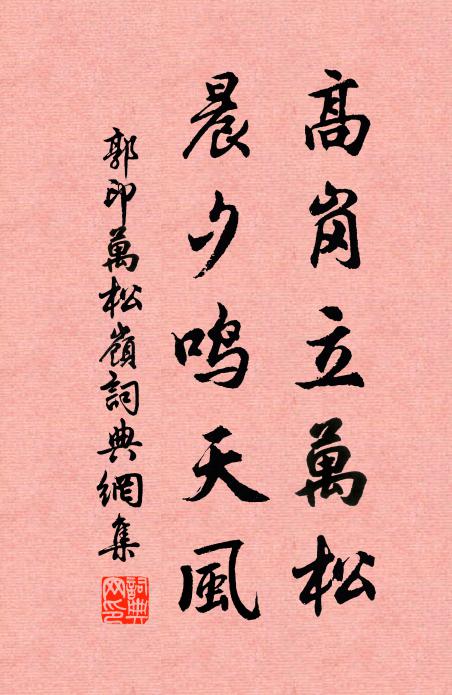 高岗立萬松
晨夕鸣天風
郭印萬松嶺詞典網集
詞典網印